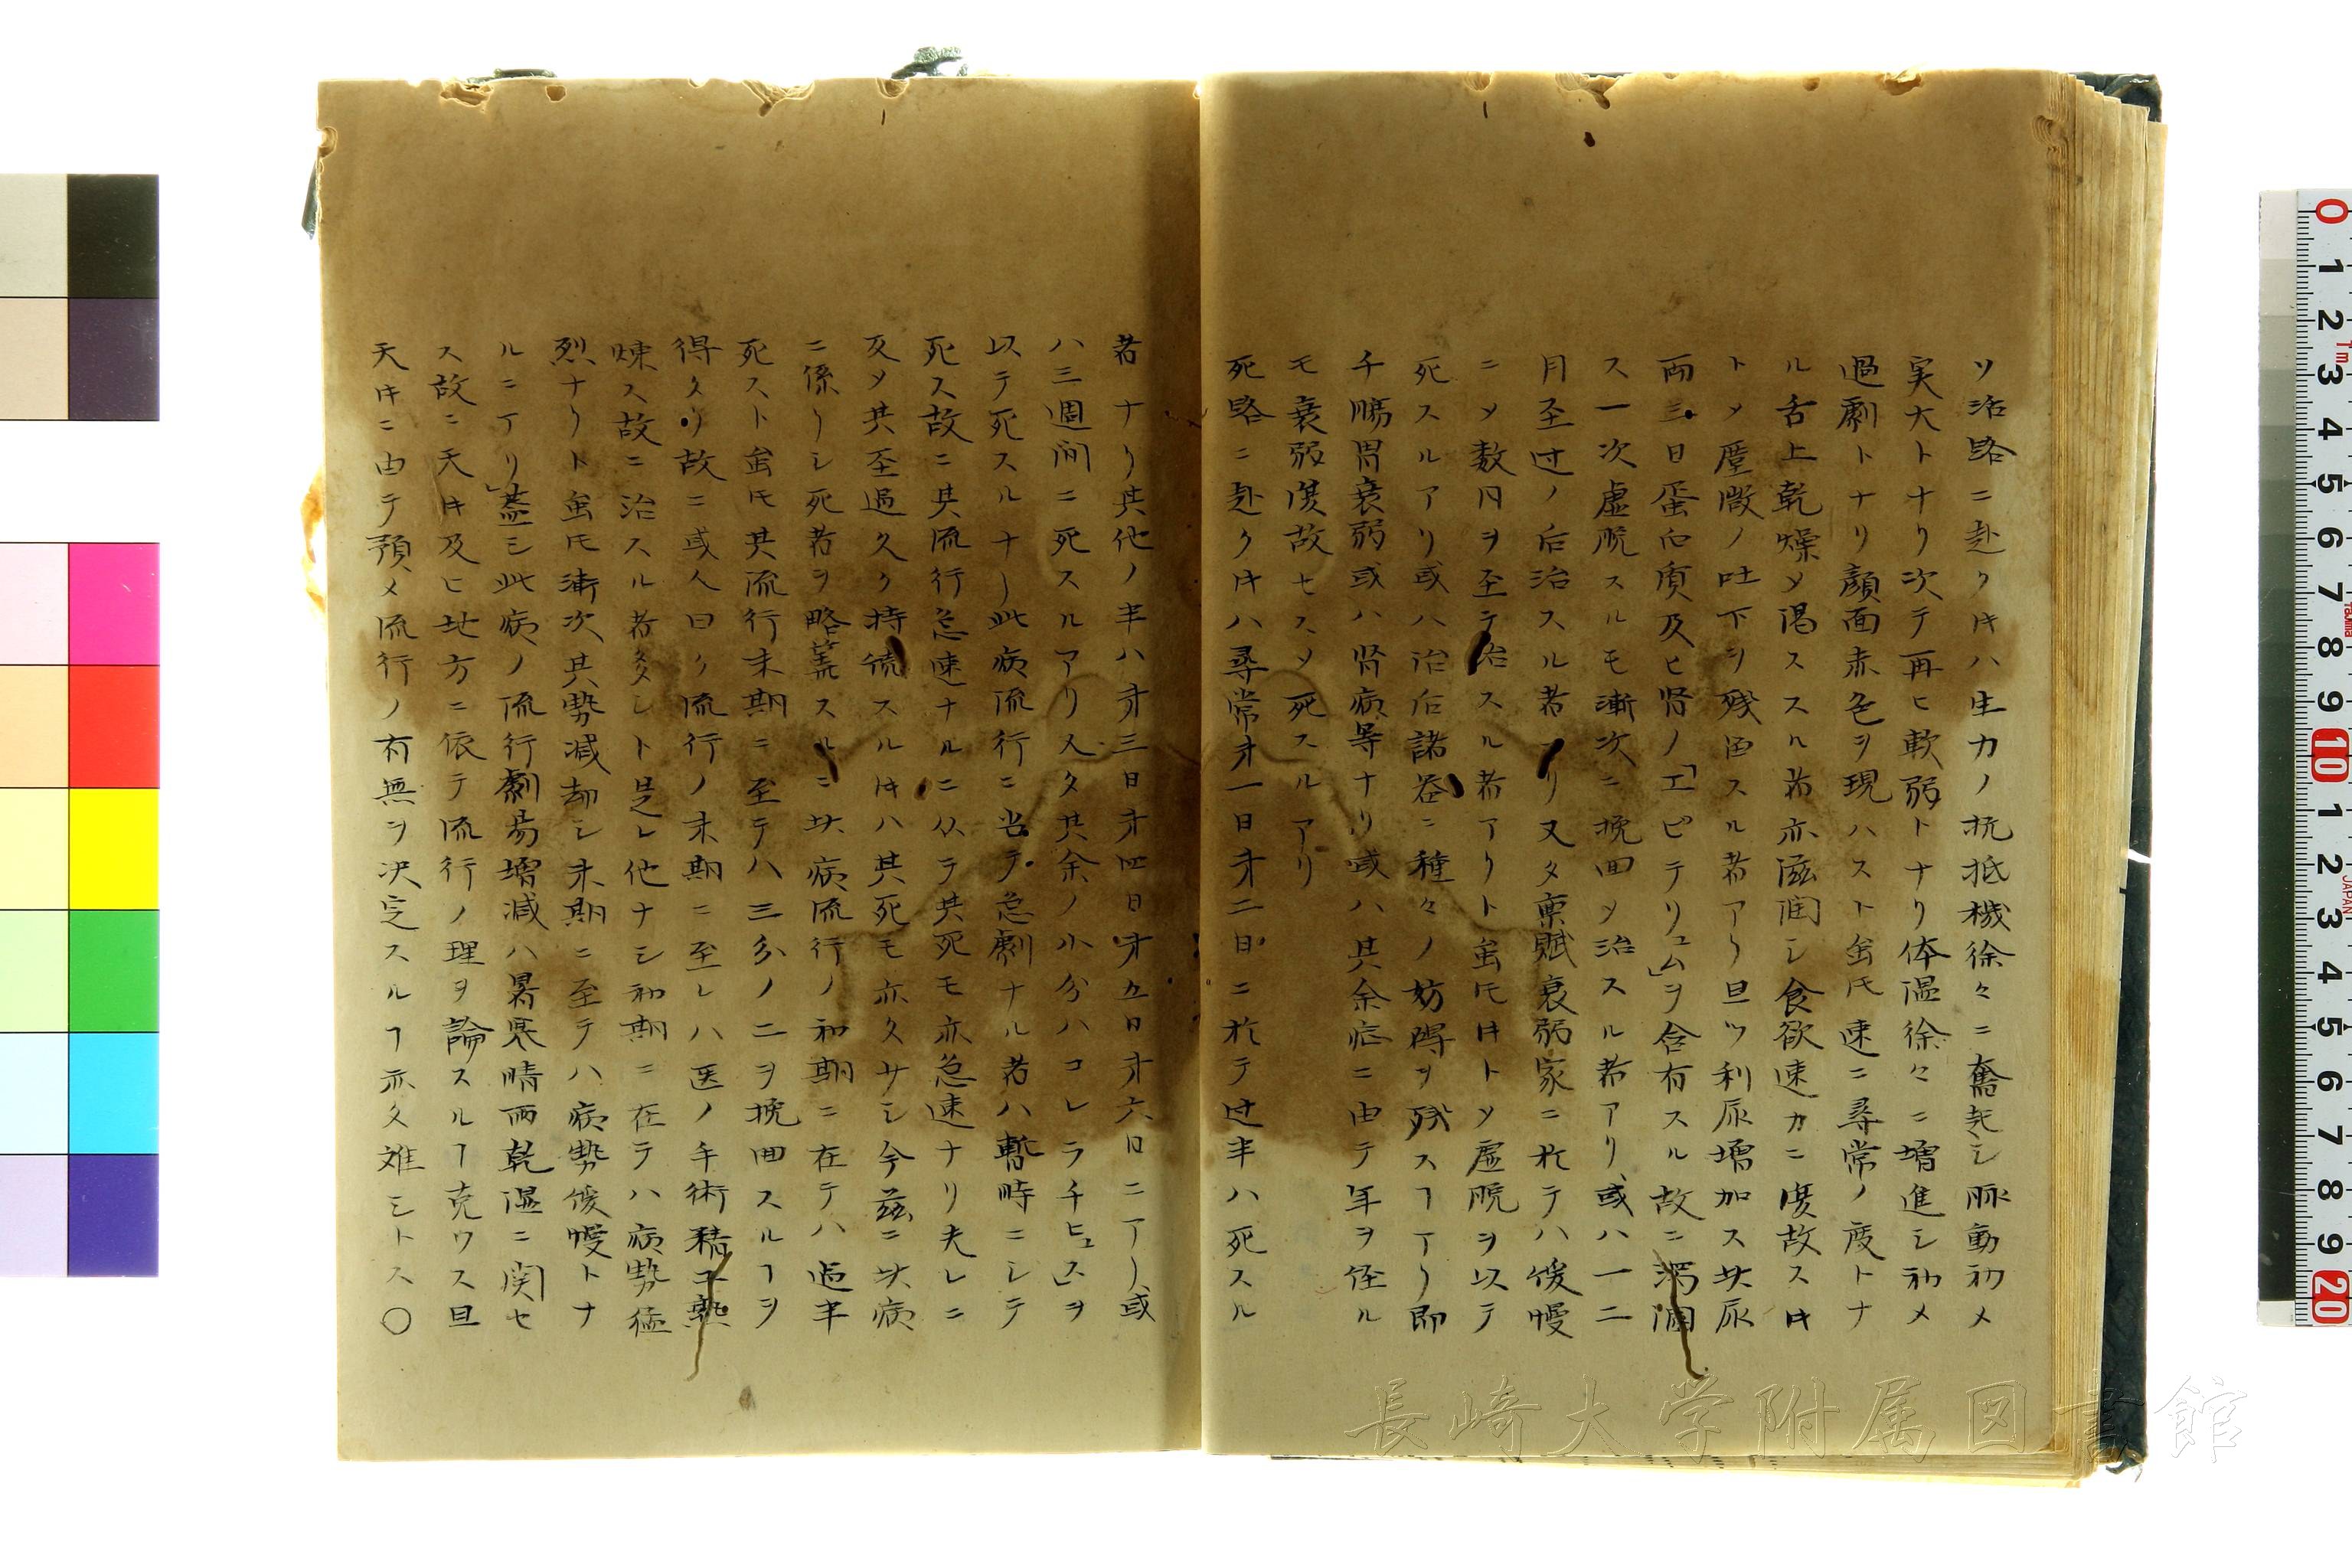 ソ治路ニ赴クㇳキハ生力ノ抗抵機徐々ニ奮起シ脈動初メ
実大トナリ次テ再ヒ軟弱トナリ体温徐々ニ増進シ初メ
過劇トナリ顔面赤色ヲ現ハスト虽𪜈速ニ尋常ノ度トナ
ル舌上乾燥乄渇スル者亦滋潤シ食欲速カニ復故スㇳキ
ト乄屢微ノ吐下ヲ残留スル者アリ且ツ利尿増加ス此尿
両三日蛋白質及ヒ腎ノ「エピテリュム」ヲ含有スル故ニ溷濁
ス一次虚脱スルモ漸次ニ挽回乄治スル者アリ或ハ一二
月至过ノ后治スル者アリ又タ稟賦衰弱家ニ於テハ缓慢
ニ乄数月ヲ至テ治スル者アリト虽𪜈㪽トメ虚脱ヲ以テ
死スルアリ或ハ治后諸器ニ種々ノ妨碍ヲ残スヿアリ即
チ腸胃衰弱或ハ腎病等ナリ或ハ其余症ニ由テ年ヲ経ル
モ衰弱復故セス乄死スルアリ
死路ニ赴クㇳキハ尋常才一日才二日ニ於テ过半ハ死スル
者ナリ其他ノ半ハ才三日才四日才五日才六日ニアリ或
ハ三週间ニ死スルアリ又タ其余ノ小分ハコレラチヒュス」ヲ
以テ死スルナリ此病流行ニ当テ急劇ナル者ハ暫時ニシテ
死ス故ニ其流行急速ナルニ从テ其死モ亦急速ナリ夫レニ
反乄其至過久ク持続スルㇳキハ其死モ亦久サシ今茲ニ此病
ニ係リシ死者ヲ略算スルニ此病流行ノ初期ニ在テハ過半
死スト虽𪜈其流行末期ニ至テハ三分ノ二ヲ挽回スルヿヲ
得タリ故ニ或人曰ク流行ノ末期ニ至レハ医ノ手術積ユ熟
煉ス故ニ治スル者多シト是レ他ナシ初期ニ在テハ病勢猛
烈ナリト虽𪜈漸次其勢减却シ末期ニ至テハ病勢缓慢トナ
ルニアリ」蓋シ此病ノ流行劇易増減ハ暑寒晴雨乾湿ニ関セ
ス故ニ天キ及ヒ地方ニ依テ流行ノ理ヲ論スルヿ克ワス且
天キニ由テ預メ流行ノ有無ヲ決定スルヿ亦タ难シトス〇
長崎大学附属図書館